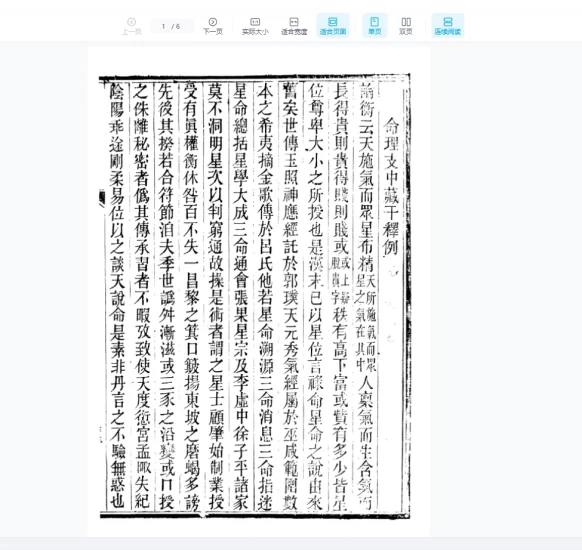 上一页
1 / 6
下一页
实际大小
适合宽度
适合页面
单页
双页
连续阅读
命理支中藏干釋例
論衡云天施氣而眾星布精天所施氣而眾星之氣在其中人稟氣而生含氣而
長得貴則貴得賤則賤或或上疑脫貴字秩有高下富或貲有多少皆星
位尊卑大小之所授也是漢末已以星位言祿命星命之說由來
舊矣世傳玉照神應經託於郭璞天元秀氣經屬於巫咸範圍數
本之希夷摘金歌傳於呂氏他若星命溯源三命消息三命指迷
星命總括星學大成三命通會張果星宗及李虛中徐子平諸家
莫不洞明星次以判窮通故操是術者謂之星士顧肇始制業授
受有眞權衡休咎百不失一昌黎之箕口簸揚東坡之磨蝎多謗
先後其揆若合符節洎夫季世譌舛漸滋或三豕之沿變或口授
之侏離秘密者僞其傳承習者不暇攷致使天度愆宮孟陬失紀
陰陽乖途剛柔易位以之談天說命是素非丹言之不驗無惑也